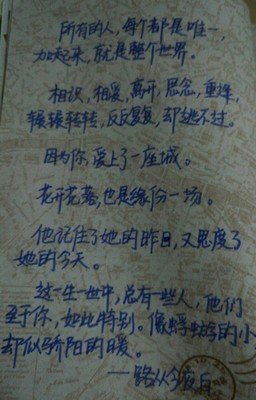 所有的人，每个都是唯一，
加起来，就是整个世界。
相识，相爱，离开，思念，重逢，
辗辗转转，反反复复，却逃不过。
因为你，爱上了一座城。
花开花落，也是缘份一场。
他记住了她的昨日，又思度了
她的今天。
这一生一世中，总有一些人，他们
至于你，如此特别。像蜉蝣的小
却似骄阳的暖。
——路从今夜白